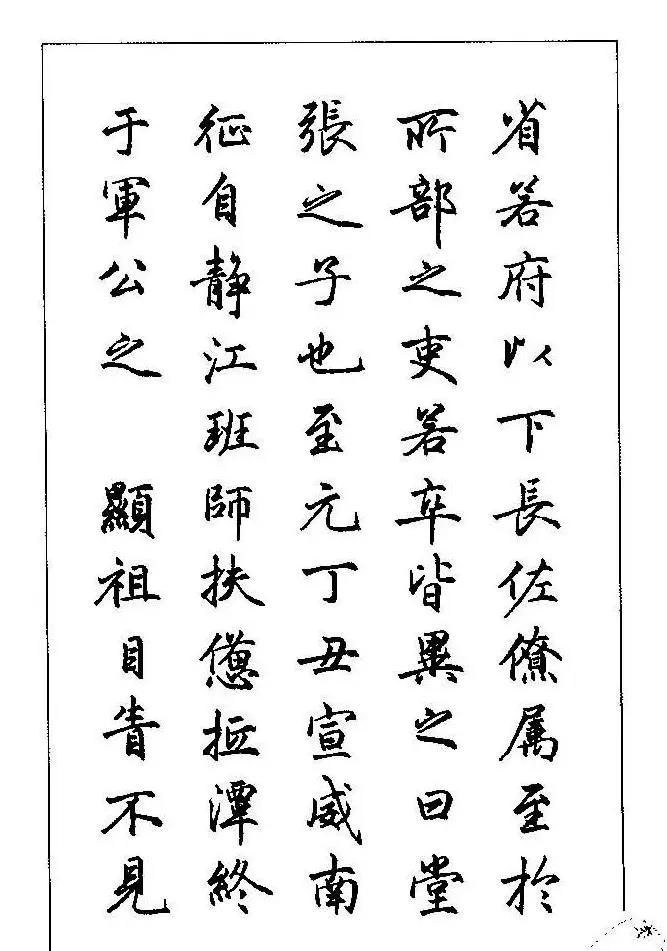 省若府以下長佐僚属至於
所部之吏若卒皆異之曰堂
張之子也至元丁丑宣威南
征自静江班師扶憊抵潭終
于軍公之　顯祖目眚不見